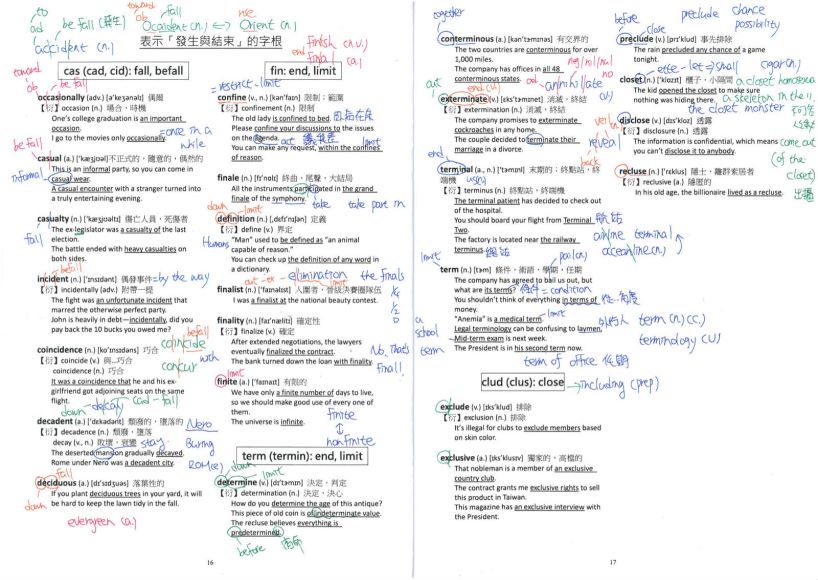 to
ad
fall
be fall (發生)
toward
ob
fall
Occident (n.) ↔ Orient (n.)
rise
accident (n.)
表示「發生與結束」的字根
finish (n.v.)
end
final (a.)
cas (cad, cid): fall, befall
toward
ob
fall
occasionally (adv.) [ə`keʒənəlɪ] 偶爾
【衍】occasion (n.) 場合，時機
One's college graduation is an important
occasion.
I go to the movies only occasionally.
=once in a
while
be fall
casual (a.) [`kæʒjoəl]不正式的，隨意的，偶然的
This is an informal party, so you can come in
casual wear.
A casual encounter with a stranger turned into
a truly entertaining evening.
informal
casualty (n.) [`kæʒjoəltɪ] 傷亡人員，死傷者
The ex-legislator was a casualty of the last
election.
The battle ended with heavy casualties on
both sides.
fall
befall
incident (n.) [`ɪnsɪdənt] 偶發事件
=by the way
【衍】incidentally (adv.) 附帶一提
The fight was an unfortunate incident that
marred the otherwise perfect party.
John is heavily in debt—incidentally, did you
pay back the 10 bucks you owed me?
coincidence (n.) [ko`ɪnsɪdəns] 巧合
【衍】coincide (v.) 與…巧合
coincidence (n.) 巧合
It was a coincidence that he and his ex-
girlfriend got adjoining seats on the same
flight.
befall
coincide
concur with
down
decay
cad - fall
decadent (a.) [`dɛkədənt] 頹廢的，墮落的
Nero
【衍】decadence (n.) 頹廢，墮落
decay (v., n.) 敗壞，衰蠹
stay.
The deserted mansion gradually decayed.
Rome under Nero was a decadent city.
fall
deciduous (a.) [dɪ`sɪdʒʊəs] 落葉性的
If you plant deciduous trees in your yard, it will
be hard to keep the lawn tidy in the fall.
down
evergreen (a.)
fin: end, limit
=restrict=limit
confine (v., n.) [kən`faɪn] 限制；範圍
【衍】confinement (n.) 限制
The old lady is confined to bed.
Please confine your discussions to the issues
on the agenda.
act
You can make any request, within the confines
of reason.
limit
finale (n.) [fɪ`nɑlɪ] 終曲，尾聲，大結局
All the instruments participated in the grand
finale of the symphony.
take
take part in
down
limit
definition (n.) [͵dɛfɪ`nɪʃən] 定義
【衍】define (v.) 界定
"Man" used to be defined as "an animal
capable of reason."
You can check up the definition of any word in
a dictionary.
Humans
out -ex-
elimination
the finals
finalist (n.) [`faɪnəlɪst] 入圍者，晉級決賽團隊伍
I was a finalist at the national beauty contest.
finality (n.) [faɪ`nælɪtɪ] 確定性
【衍】finalize (v.) 確定
After extended negotiations, the lawyers
eventually finalized the contract.
The bank turned down the loan with finality.
No, that's
final!
limit
finite (a.) [`faɪnaɪt] 有限的
We have only a finite number of days to live,
so we should make good use of every one of
them.
The universe is infinite.
finite
nonfinite
term (termin): end, limit
down
limit
determine (v.) [dɪ`tɝmɪn] 決定，判定
【衍】determination (n.) 決定，決心
How do you determine the age of this antique?
This piece of old coin is of indeterminate value.
The recluse believes everything is
predetermined.
before
16
together
conterminous (a.) [kən`tɝmənəs] 有交界的
The two countries are conterminous for over
1,000 miles.
The company has offices in all 48
conterminous states.
neg/nil/nal
ad
no
annihilate
(v.)
out
end (v.)
exterminate (v.) [ɪks`tɝmənet] 消滅，終結
【衍】extermination (n.) 消滅，終結
The company promises to exterminate
cockroaches in any home.
The couple decided to terminate their
marriage in a divorce.
end
terminal (a., n.) [`tɝmən!] 末期的；終點站，終
端機
【衍】terminus (n.) 終點站，終端機
The terminal patient has decided to check out
of the hospital.
You should board your flight from Terminal
Two.
航站
The factory is located near the railway
terminus.
airline terminal
limit
term (n.) [tɝm] 條件，術語，學期，任期
The company has agreed to bail us out, but
what are its terms?
條件=condition
You shouldn't think of everything in terms of
money.
"Anemia" is a medical term.
limit
Legal terminology can be confusing to laymen.
Mid-term exam is next week.
The President is in his second term now.
a
school
term
term (n.)(C.)
terminology (U)
term of office 任期
clud (clus): close
→including (prep)
exclude (v.) [ɪks`klud] 排除
【衍】exclusion (n.) 排除
It's illegal for clubs to exclude members based
on skin color.
exclusive (a.) [ɪks`klusɪv] 獨家的，高檔的
That nobleman is a member of an exclusive
country club.
The contract grants me exclusive rights to sell
this product in Taiwan.
This magazine has an exclusive interview with
the President.
before
close
preclude chance
possibility
preclude (v.) [prɪ`klud] 事先排除
The rain precluded any chance of a game
tonight.
ette - let => small
cigar (n.)
closet (n.) [`klɑzɪt] 櫃子，小隔間
The kid opened the closet to make sure
nothing was hiding there.
a skeleton in the
the closet monster
disclose (v.) [dɪs`kloz] 透露
【衍】disclosure (n.) 透露
The information is confidential, which means
you can't disclose it to anybody.
veil
reveal
come out
(of the
closet)
出櫃
back
recluse (n.) [`rɛklus] 隱士，離群索居者
【衍】reclusive (a.) 隱匿的
In his old age, the billionaire lived as a recluse.
17